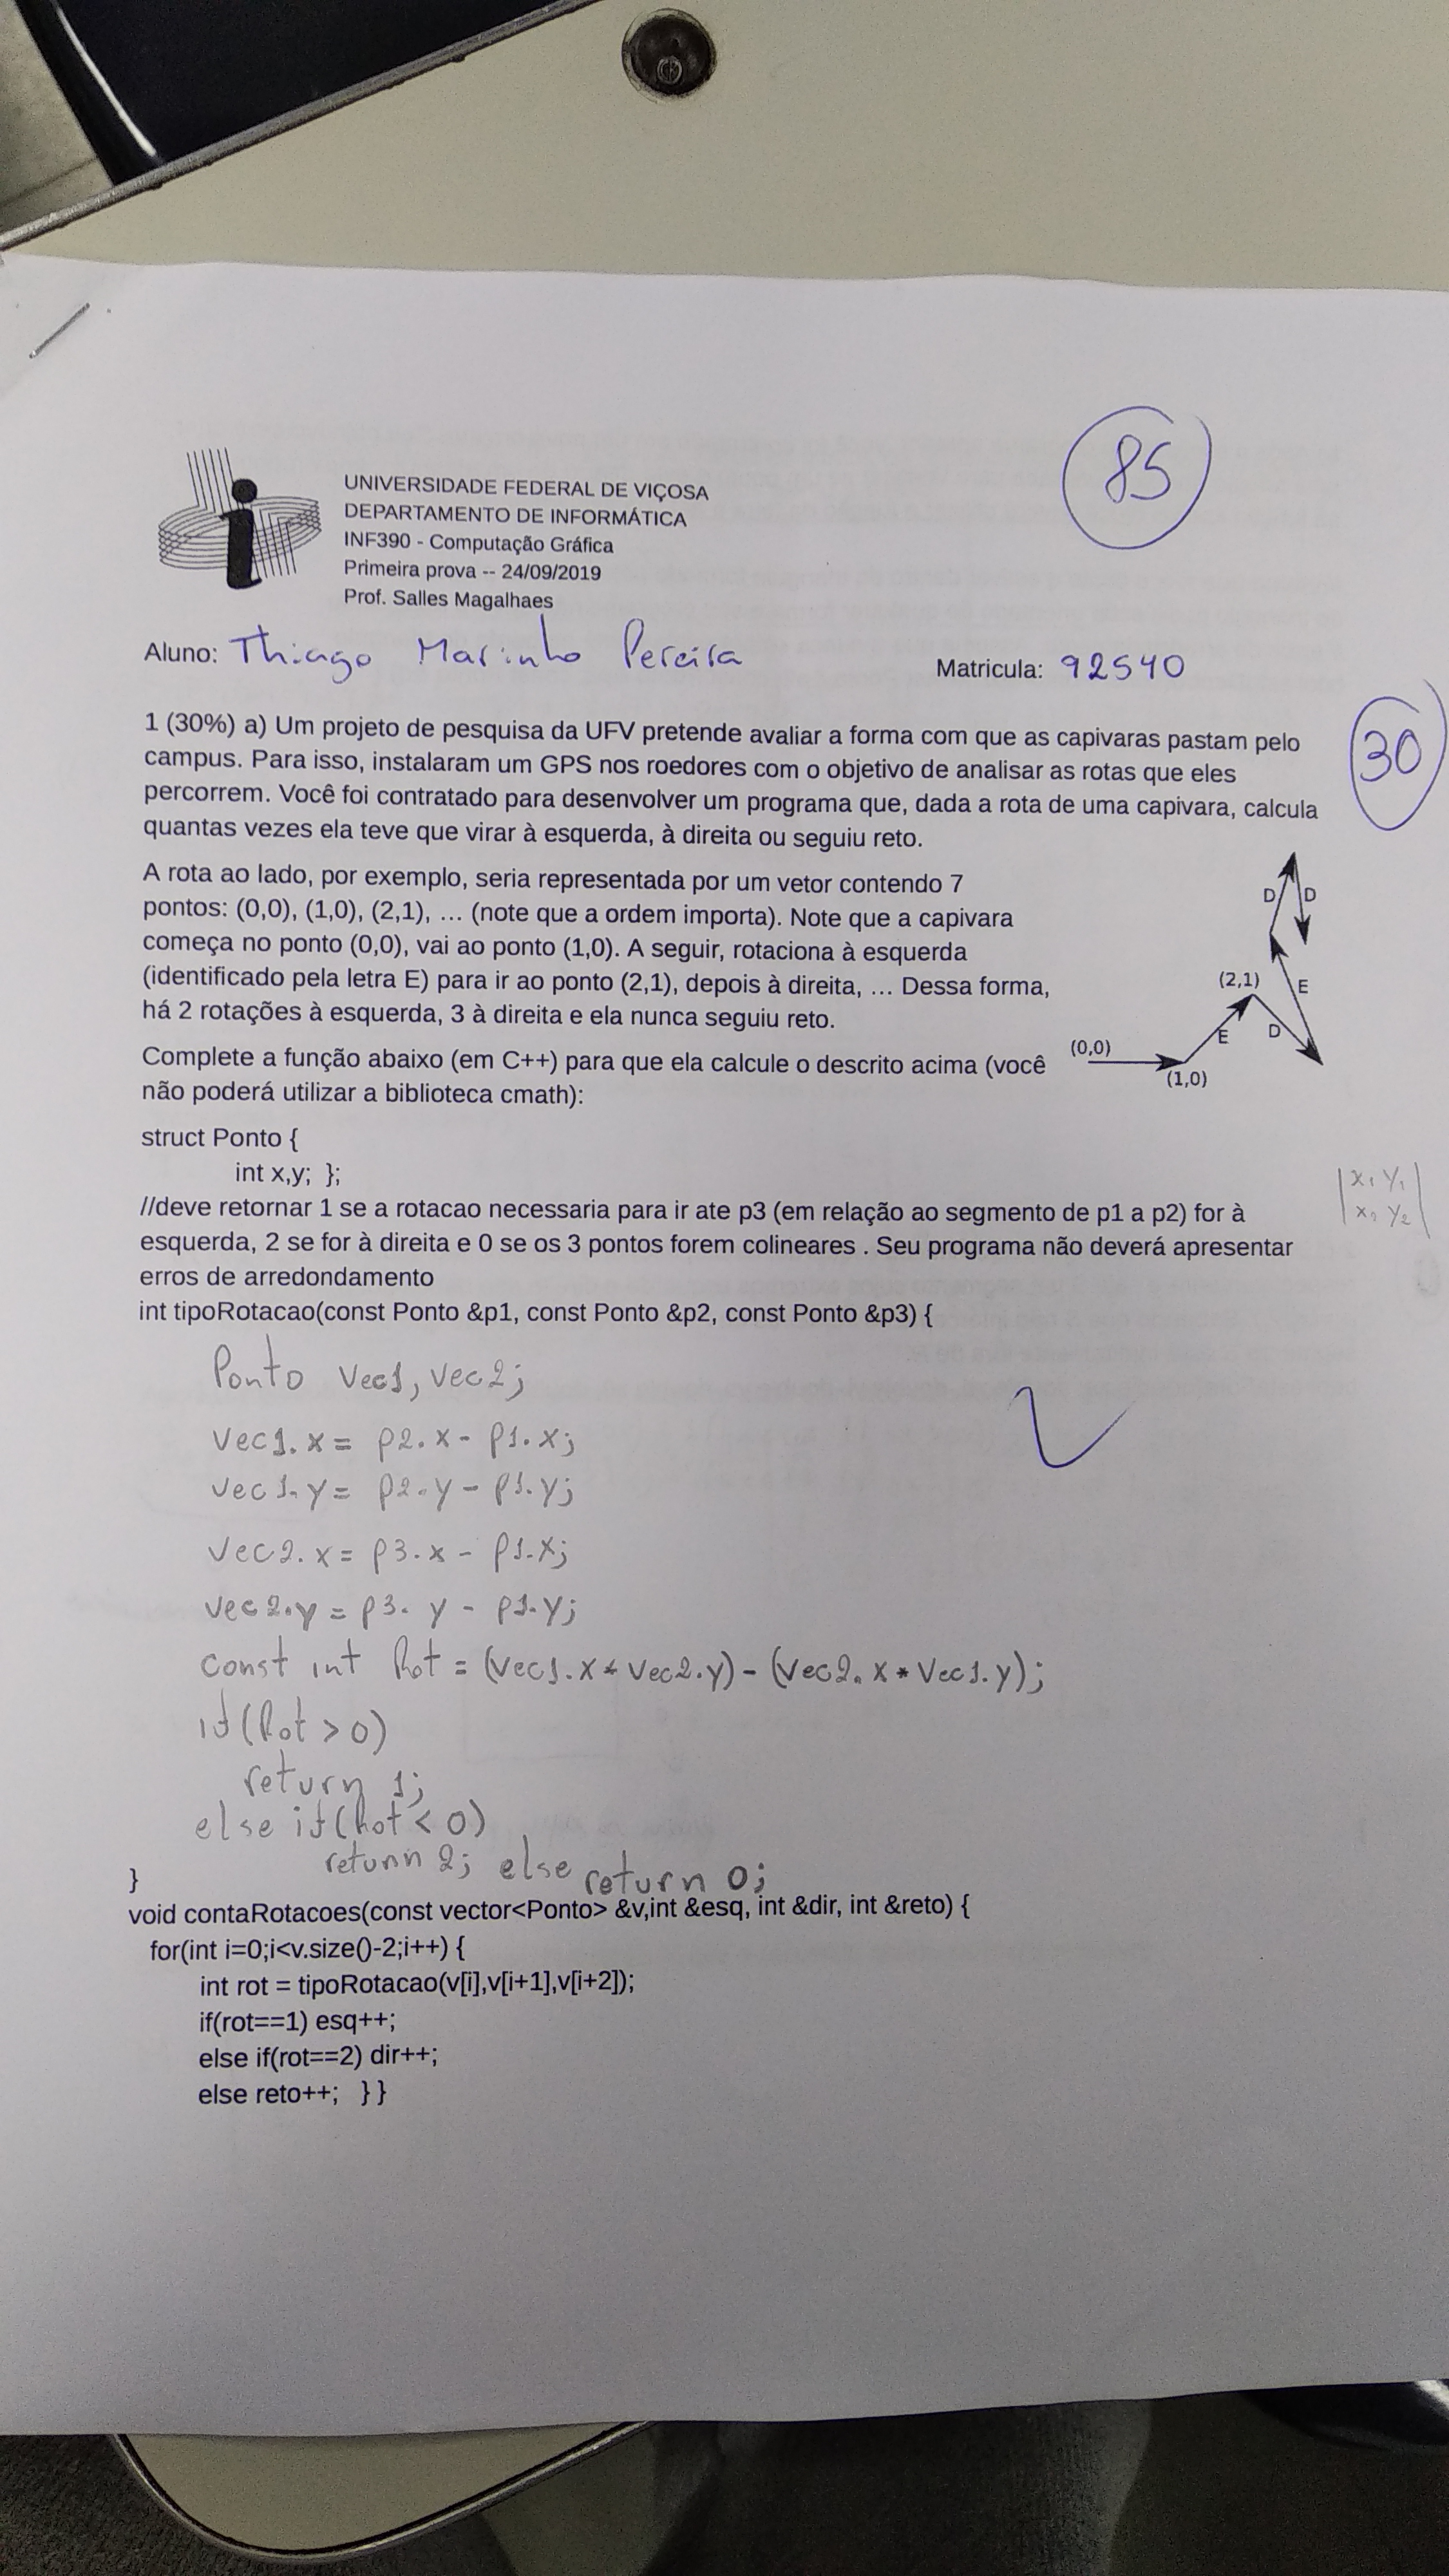 85
UNIVERSIDADE FEDERAL DE VIÇOSA
DEPARTAMENTO DE INFORMÁTICA
INF390 - Computação Gráfica
Primeira prova -- 24/09/2019
Prof. Salles Magalhaes
Aluno: Thiago Marinho Pereira Matricula: 92540
30
1 (30%) a) Um projeto de pesquisa da UFV pretende avaliar a forma com que as capivaras pastam pelo
campus. Para isso, instalaram um GPS nos roedores com o objetivo de analisar as rotas que eles
percorrem. Você foi contratado para desenvolver um programa que, dada a rota de uma capivara, calcula
quantas vezes ela teve que virar à esquerda, à direita ou seguiu reto.
A rota ao lado, por exemplo, seria representada por um vetor contendo 7
pontos: (0,0), (1,0), (2,1), ... (note que a ordem importa). Note que a capivara
começa no ponto (0,0), vai ao ponto (1,0). A seguir, rotaciona à esquerda
(identificado pela letra E) para ir ao ponto (2,1), depois à direita, ... Dessa forma,
há 2 rotações à esquerda, 3 à direita e ela nunca seguiu reto.
D D
(2,1) E
E D
(0,0)
(1,0)
Complete a função abaixo (em C++) para que ela calcule o descrito acima (você
não poderá utilizar a biblioteca cmath):
struct Ponto {
int x,y; };
x1 y1
x2 y2
//deve retornar 1 se a rotacao necessaria para ir ate p3 (em relação ao segmento de p1 a p2) for à
esquerda, 2 se for à direita e 0 se os 3 pontos forem colineares . Seu programa não deverá apresentar
erros de arredondamento
int tipoRotacao(const Ponto &p1, const Ponto &p2, const Ponto &p3) {
Ponto vec1, vec2;
vec1.x = p2.x - p1.x;
vec1.y = p2.y - p1.y;
vec2.x = p3.x - p1.x;
vec2.y = p3.y - p1.y;
const int Rot = (vec1.x * vec2.y) - (vec2.x * vec1.y);
if(Rot > 0)
return 1;
else if(Rot < 0)
return 2; else return 0;
}
void contaRotacoes(const vector<Ponto> &v,int &esq, int &dir, int &reto) {
for(int i=0;i<v.size()-2;i++) {
int rot = tipoRotacao(v[i],v[i+1],v[i+2]);
if(rot==1) esq++;
else if(rot==2) dir++;
else reto++; } }